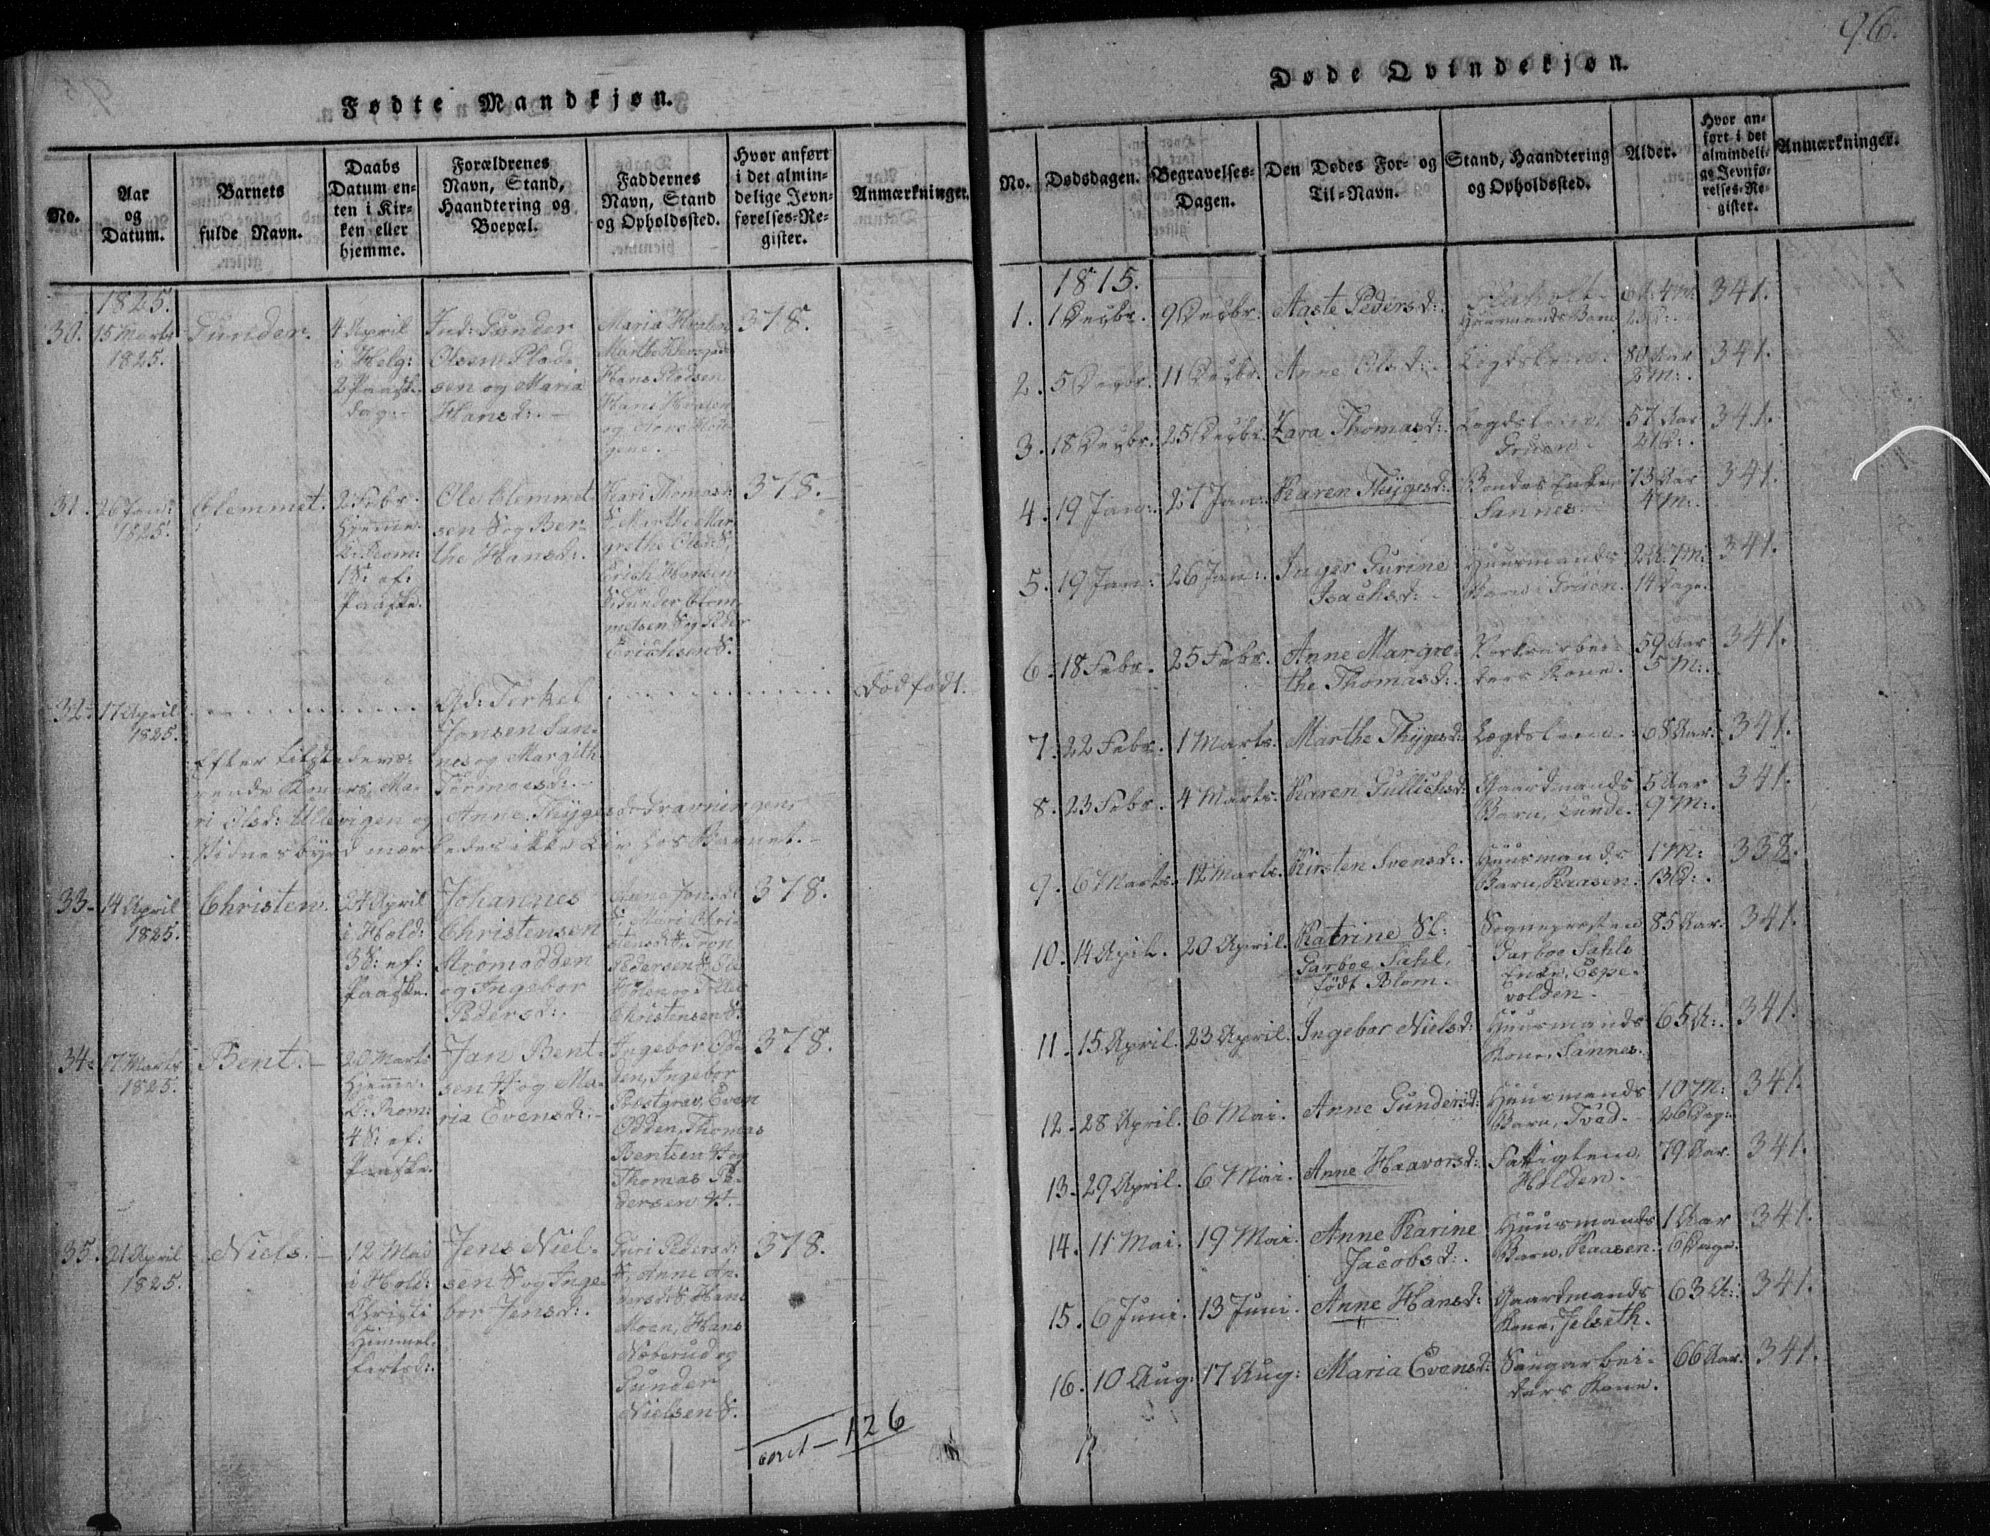 Fødte Mandkjøn.
No.
Aar
og
Datum.
Barnets
fulde Navn.
Daabs
Datum en-
ten i Kir-
ken eller
hjemme.
Forældrenes
Navn, Stand,
Haandtering og
Boepæl.
Faddernes
Navn, Stand
og Opholdssted.
Hvor anført
i det almin-
delige Jevn-
førelses-Re-
gister.
Anmærkninger.
1825.
30. 15 Marts
1825.
Gunder.
4 April
i Helg:
2 Paaske-
dag.
Ind: Gunder
Olsen Plad-
sen og Maria
Hansd:
Maria
Marthe
Hans Pladsen
Hans
og
378.
31. 26 Jan:
1825.
Clemmet.
2 Febr.
Hjemme.
18: ef:
Paaske.
Ole Clemmet-
sen S og Ber-
the Hansd:
Kari Thomasd:
S. Marthe Mar-
grethe Olsd: S,
Erich Hansen
S Gunder Clem-
metsen S og Peder
Erichsen S.
378.
32. 17 April
1825.
Gd: Terkel
Jonsen San-
nes og Margith
Tormoesd:
Dødfødt.
Efter tilstedevæ-
rende Koners, Ma-
ri Olsd: Ullevigen og Anne Thygesd: Gravningens
Vidnesbyrd mærkedes ikke Liv hos Barnet.
33. 14 April
1825.
Christen.
24 April
i Hold:
3 S: ef:
Paaske.
Johannes
Christensen
Strømodden
og Ingebor
Pedersd:
Anne Jonsd:
S. Mari Chri-
stensd: S. Tron
Pedersen S. Ole
Holen og
Christensen S.
378.
34. 17 Marts
1825.
Bent.
20 Marts
Hjemme.
4 S: ef:
Paaske.
Jan Bent-
sen H og Ma-
ria Evensd:
Ingebor Od-
den, Ingebor
Postgrav, Even
Odden, Thomas
Bentsen H og
Thomas Pe-
dersen H.
378.
35. 21 April
1825.
Niels.
12 Mai
i Hold:
Christi
Himmel-
fartsd:
Jens Niel-
sen S og Inge-
bor Jensd:
Guri Pedersd:
S, Anne An-
dersd: S. Hans
Moen, Hans
Næberud og
Gunder
Nielsen S.
378.
126
96.
Døde Qvindekjøn.
No.
Dødsdagen.
Begravelses-
Dagen.
Den Dødes For- og
Til-Navn.
Stand, Haandtering
og Opholdssted.
Alder.
Hvor an-
ført i det
almindeli-
ge Jevnfø-
relses-Re-
gister.
Anmærkninger.
1815.
1. 1 Decbr. 9 Decbr. Aaste Pedersd:
Huusmands Barn
6 A: 4 M:
341.
2. 5 Decbr. 11 Decbr. Anne Olsd: Lægdslem. 80 Aar
2 M:
341.
3. 18 Decbr. 25 Decbr. Zara Thomasd: Lægdslem
Gruen
57 Aar
341.
4. 19 Jan: 27 Jan: Karen Thygesd: Bondes Enke,
Sannes.
73 Aar
4 M:
341.
5. 19 Jan: 26 Jan: Inger Gurine
Isachsd:
Huusmands
Barn i Gruen.
2 A: 7 M:
14 Dage.
341.
6. 18 Febr. 25 Febr. Anne Margre-
the Thomasd:
Verksarbei-
ders Kone.
59 Aar
5 M:
341.
7. 22 Febr. 1 Marts. Marthe Thygesd: Lægdslem. 68 Aar. 341.
8. 23 Febr. 4 Marts. Karen Gullichsd: Gaardmands
Barn, Lunde.
5 Aar
9 M:
341.
9. 6 Marts. 12 Marts. Kirsten Svensd: Huusmands
Barn, Kaasen.
1 M:
13 D:
338.
10. 14 April. 20 April. Katrine Sl:
Garboe Dahl,
født Blom.
Sogneprestens
Garboe Dahls
Enke, Espe-
volden.
85 Aar.
341.
11. 15 April. 23 April. Ingebor Nielsd: Huusmands
Kone, Sannes.
65 A:
341.
12. 28 April. 6 Mai. Anne Gundersd: Huusmands
Barn, Tvæd.
10 M:
26 Dag:
341.
13. 29 April. 6 Mai. Anne Haavorsd: Fattiglem,
Holden.
79 Aar.
341.
14. 11 Mai. 19 Mai. Anne Karine
Jacobsd:
Huusmands
Barn, Kaasen.
1 Aar
6 Dage.
341.
15. 6 Juni. 13 Juni. Anne Hansd: Gaardmands
Kone, Jelseth.
63 A:
341.
16. 10 Aug: 17 Aug: Maria Evensd: Saugarbei-
ders Kone.
66 Aar.
341.